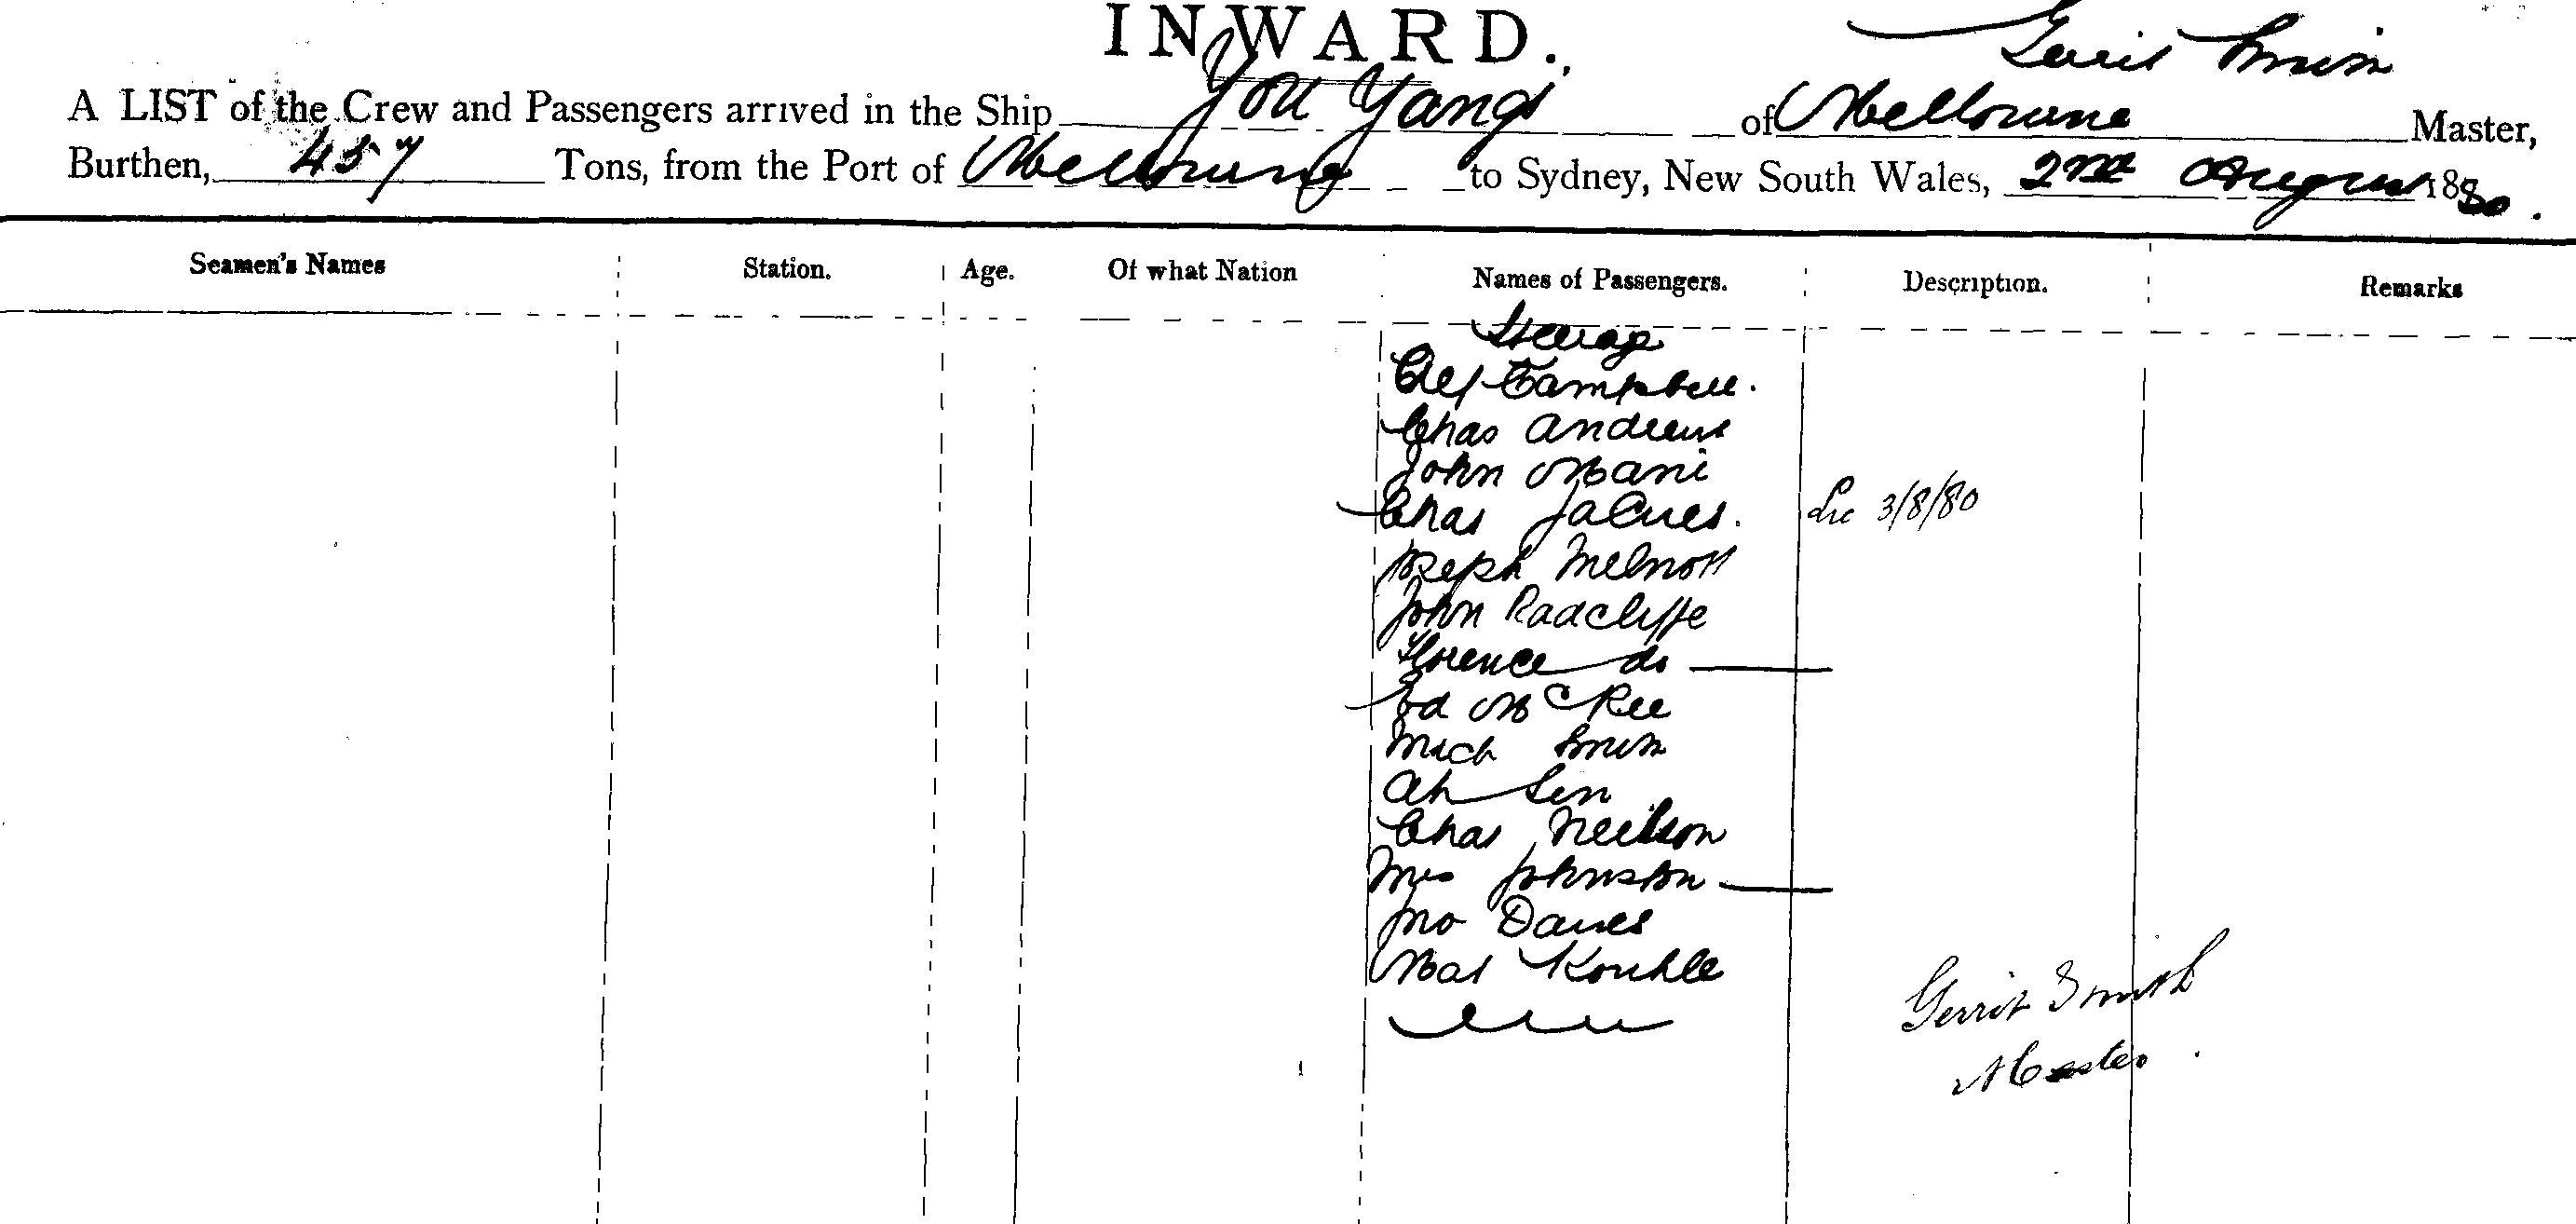 INWARD.
Gerrit Smith
A LIST of the Crew and Passengers arrived in the Ship You Yangs of Melbourne Master,
Burthen, 457 Tons, from the Port of Melbourne to Sydney, New South Wales, 2nd August 1880.
Seamen's Names Station. Age. Of what Nation Names of Passengers. Description. Remarks
Steerage
Alf Campbell.
Chas Andrews
John Mani
Chas Jacques. 3/8/80
Joseph
John Radcliffe
Florence do
Ed McRee
Mich Smith
Ah Sen
Chas Neilson
Mrs Johnston
Jno Davies
Mat
Gerrit Smith
Master.